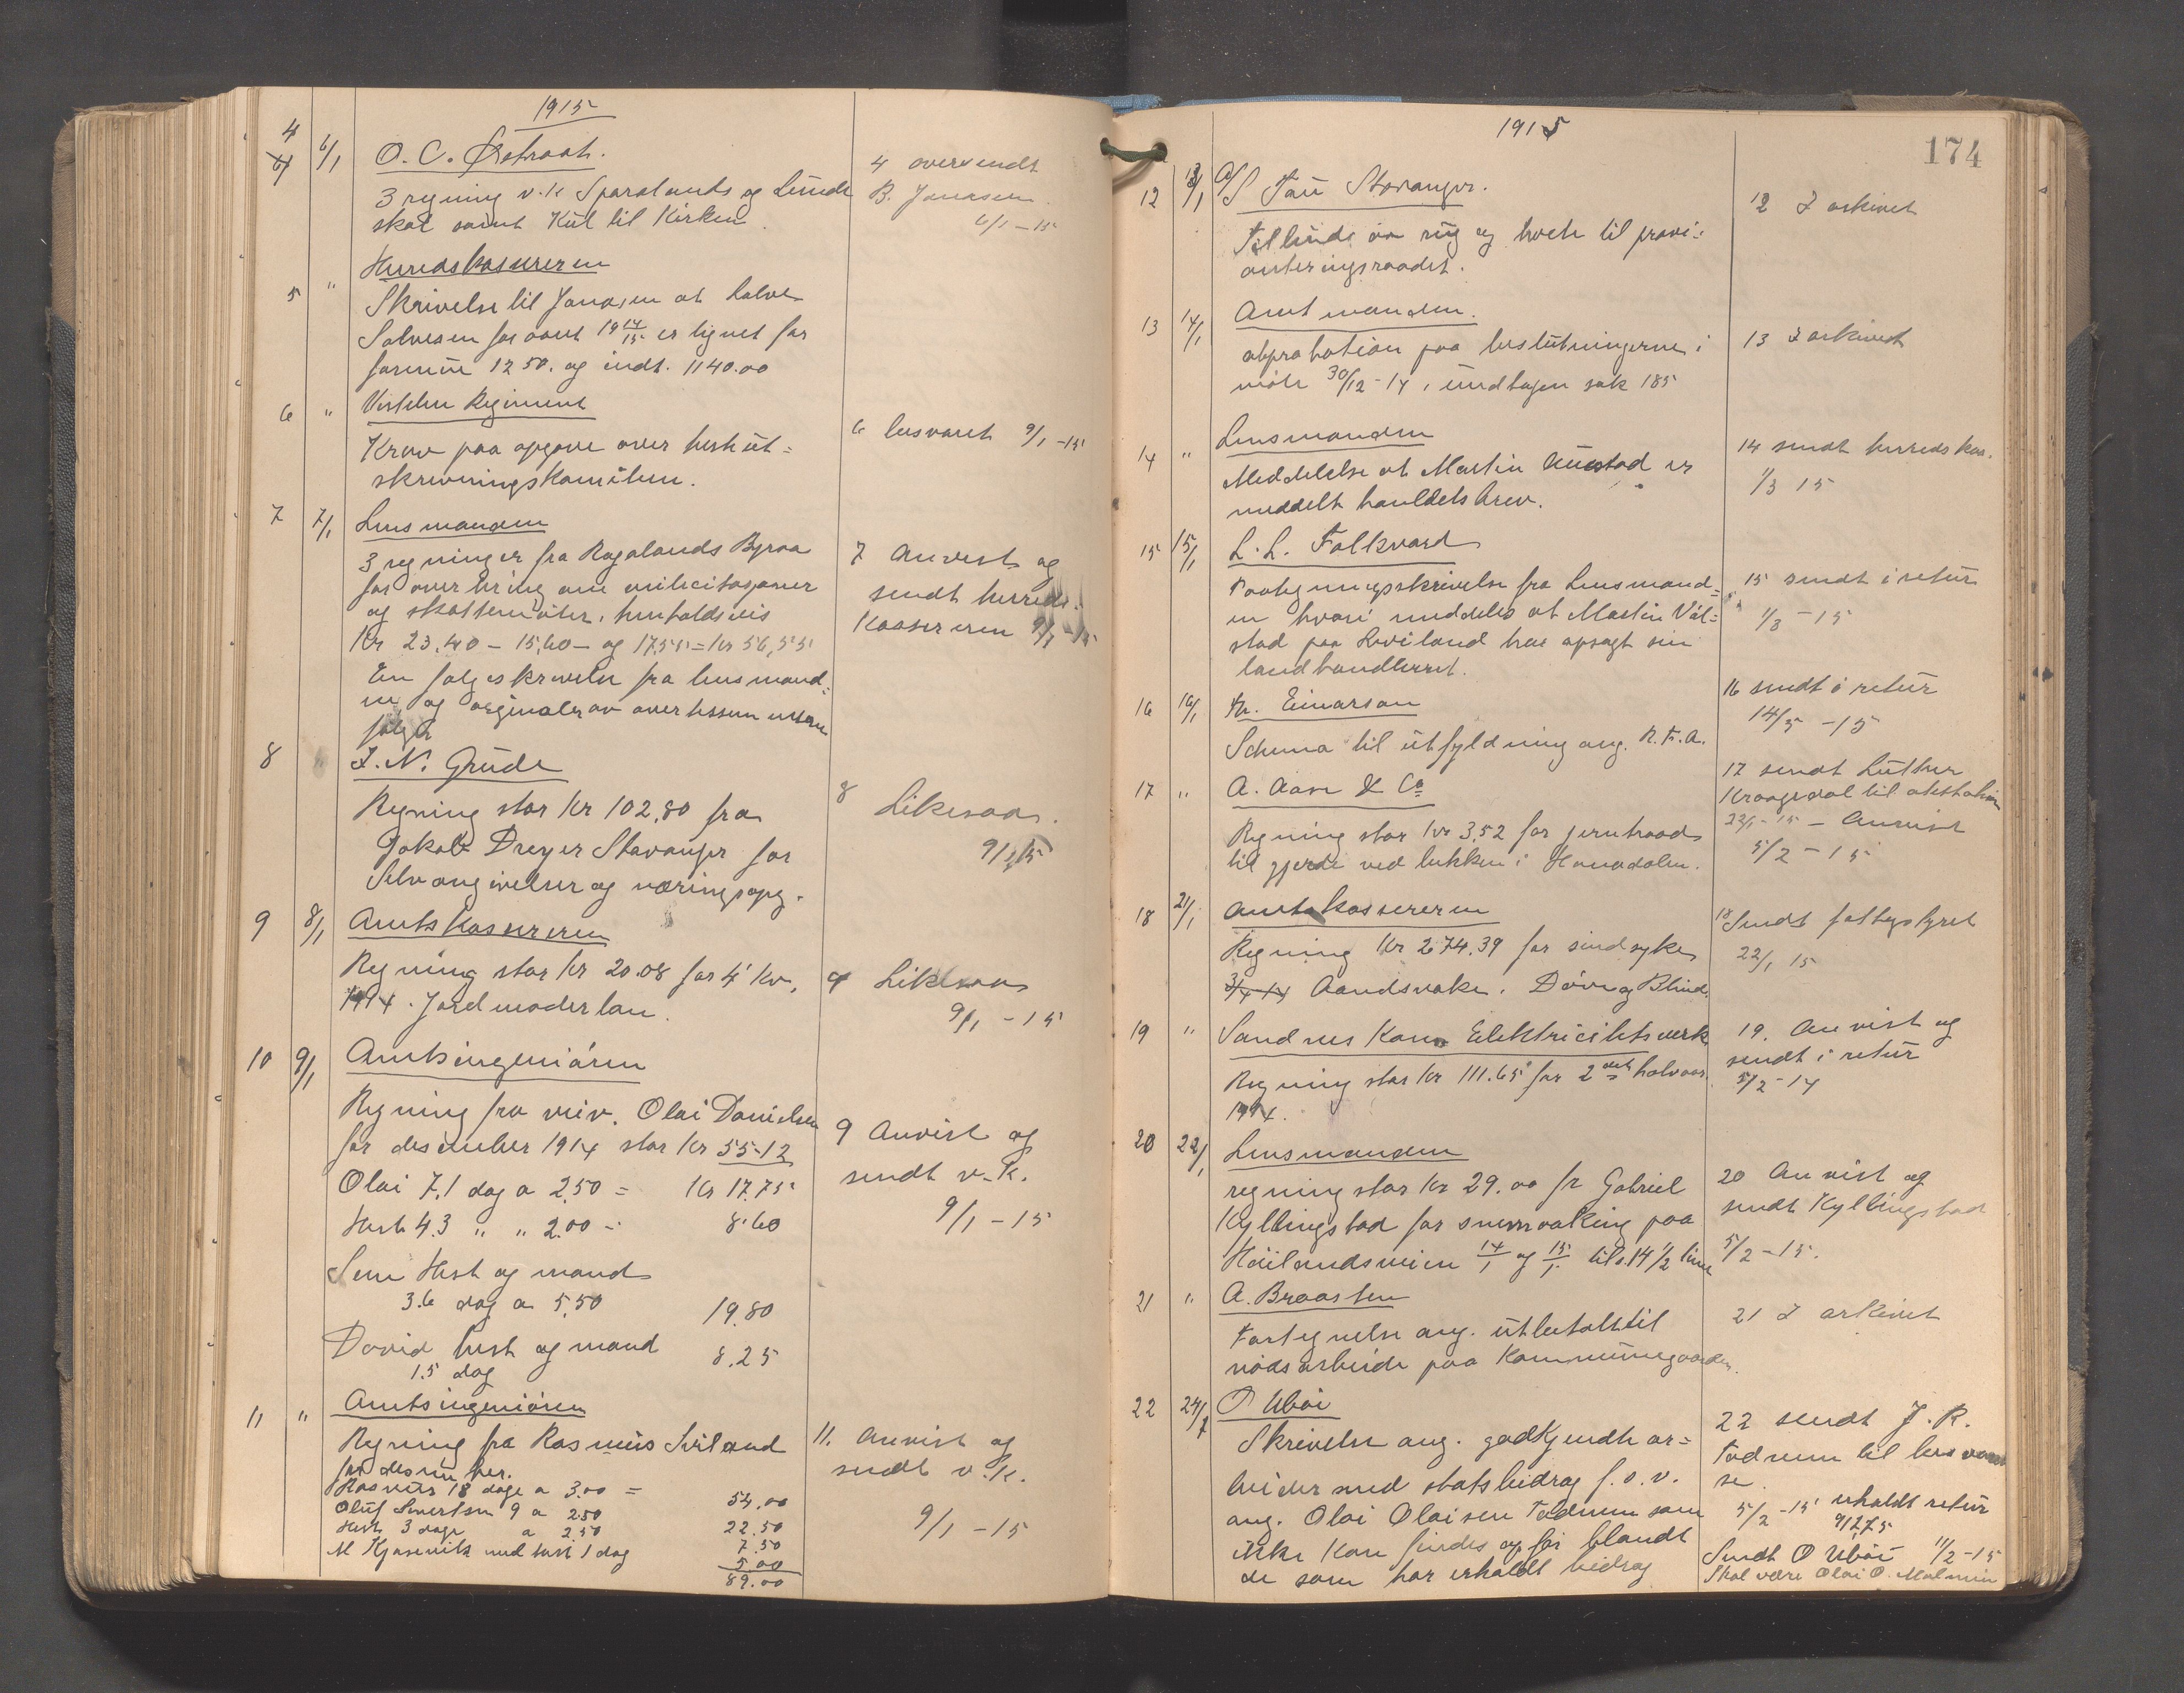 1915
4 6/1 O. C. Østraat.
3 regning v.k Sparalands og Lunde
skole samt Kul til Kirken.
4 oversendt
B. Jonassen
6/1 - 15
Herredskassereren
5 " Skrivelse til Jonassen at Salve
Salvesen for aaret 19 14/15 er lignet for
formue 1250. og indt. 1140.00
6 " Vesterlen Regiment
Krav paa opgave over hesteut-
skrivningskomiteen.
6 besvaret 9/1 - 15
7 7/1 Lensmanden
3 regninger fra Rogalands Byraa
for avertering om militsesjoner
og skattemøter, henholdsvis
Kr 23.40 - 15,60 - og 17,55 = Kr 56,55
En følgeskrivelse fra lensmand-
en og orginaler av
følger
7 Anvist og
sendt herreds-
kassereren 9/1 - 15
8 " I. N. Grude
Regning stor Kr 102,80 fra
Jakob Dreyer Stavanger for
Selvangivelser og næringsopg.
8 Likesaa.
9/1 15
9 8/1 Amtskassereren
Regning stor Kr 20.08 for 4' Kv.
1914. Jordmoderløn.
9 Likesaa
9/1 - 15
10 9/1 Amtsingeniøren
Regning fra veiv. Olai Danielsen
for desember 1914 stor Kr 55-12
Olai 7,1 dag a 2,50 = Kr 17.75
Hest 4.3 " " 2.00 - 8.60
Sem Hest og mand
3.6 dag a 5,50 19.80
David hest og mand 8.25
1.5 dag
9 Anvist og
sendt v.k.
9/1 - 15
11 " Amtsingeniøren
Regning fra Rasmus Sviland
for desember.
Rasmus 18 dage a 3.00 = 54.00
Oluf Sivertsen 9 a 250 22.50
Hest 3 dage a 2,50 7.50
M Kjosavik med hest 1 dag 5.00
89.00
11. Anvist og
sendt v.k.
9/1 - 15
1915
174
12 13/1 A/S Tau Stavanger.
Tilbud om rug og hvete til provi-
anteringsraadet.
12 I arkivet
13 14/1 Amtmanden.
abprobation paa beslutningerne i
møte 30/12 - 14, undtagen sak 185
13 I arkivet
14 " Lensmanden
Meddelelse at Martin Austad er
meddelt handelsbrev.
14 sendt herredskas.
1/3 15
15 15/1 L. L. Folkvord
Paategningsskrivelse fra Lensmand-
en hvori meddeles at Martin Val-
stad paa Hoiland har opsagt sin
landhandlerret.
15 sendt i retur
1/3 - 15
16 16/1 Th. Einarsen
Schema til utfyldning ang. R.F.A.
16 sendt i retur
14/5 - 15
17 " A. Aase & Co
Regning stor Kr 3,52 for jerntraad
til gjerde ved bækken i Hanadalen.
17 sendt Luther
Kraagedal til atestation
22/1 - 15 - Anvist
5/2 - 15
18 21/1 Amtskassereren
Regning Kr 274.39 for sindsyke
Aandsvake. Døve og Blinde
18 Sendt fattigstyret
22/1 15
19 " Sandnes Kom Elektricitetsverk
Regning stor Kr 111.65 for 2det halvaar
1914.
19. Anvist og
sendt i retur
5/2 - 14
20 22/1 Lensmanden
regning stor Kr 29.00 fr Gabriel
Kyllingstad for snemaaking paa
Høilandsveien 14/1 og 15/1. tils. 14 1/2 time
20 Anvist og
sendt Kyllingstad
5/2 - 15.
21 " A. Braasten
Fortegnelse ang. utbetalt til
nødsarbeide paa Kommunegaarden.
21 I arkivet
22 24/1 O Uboi
Skrivelse ang. godkjendte ar-
beider med statsbidrag f.o.v.
ang. Olai Olaisen Tødnem som
ikke kan findes opfør blandt
de som har erholdt bidrag
22 sendt J. R.
Tødnem til besvarel
se.
5/2 - 15 erholdt retur
9/2 15
Sendt O Uboi 11/2 - 15
Skal være Olai O. Malmin